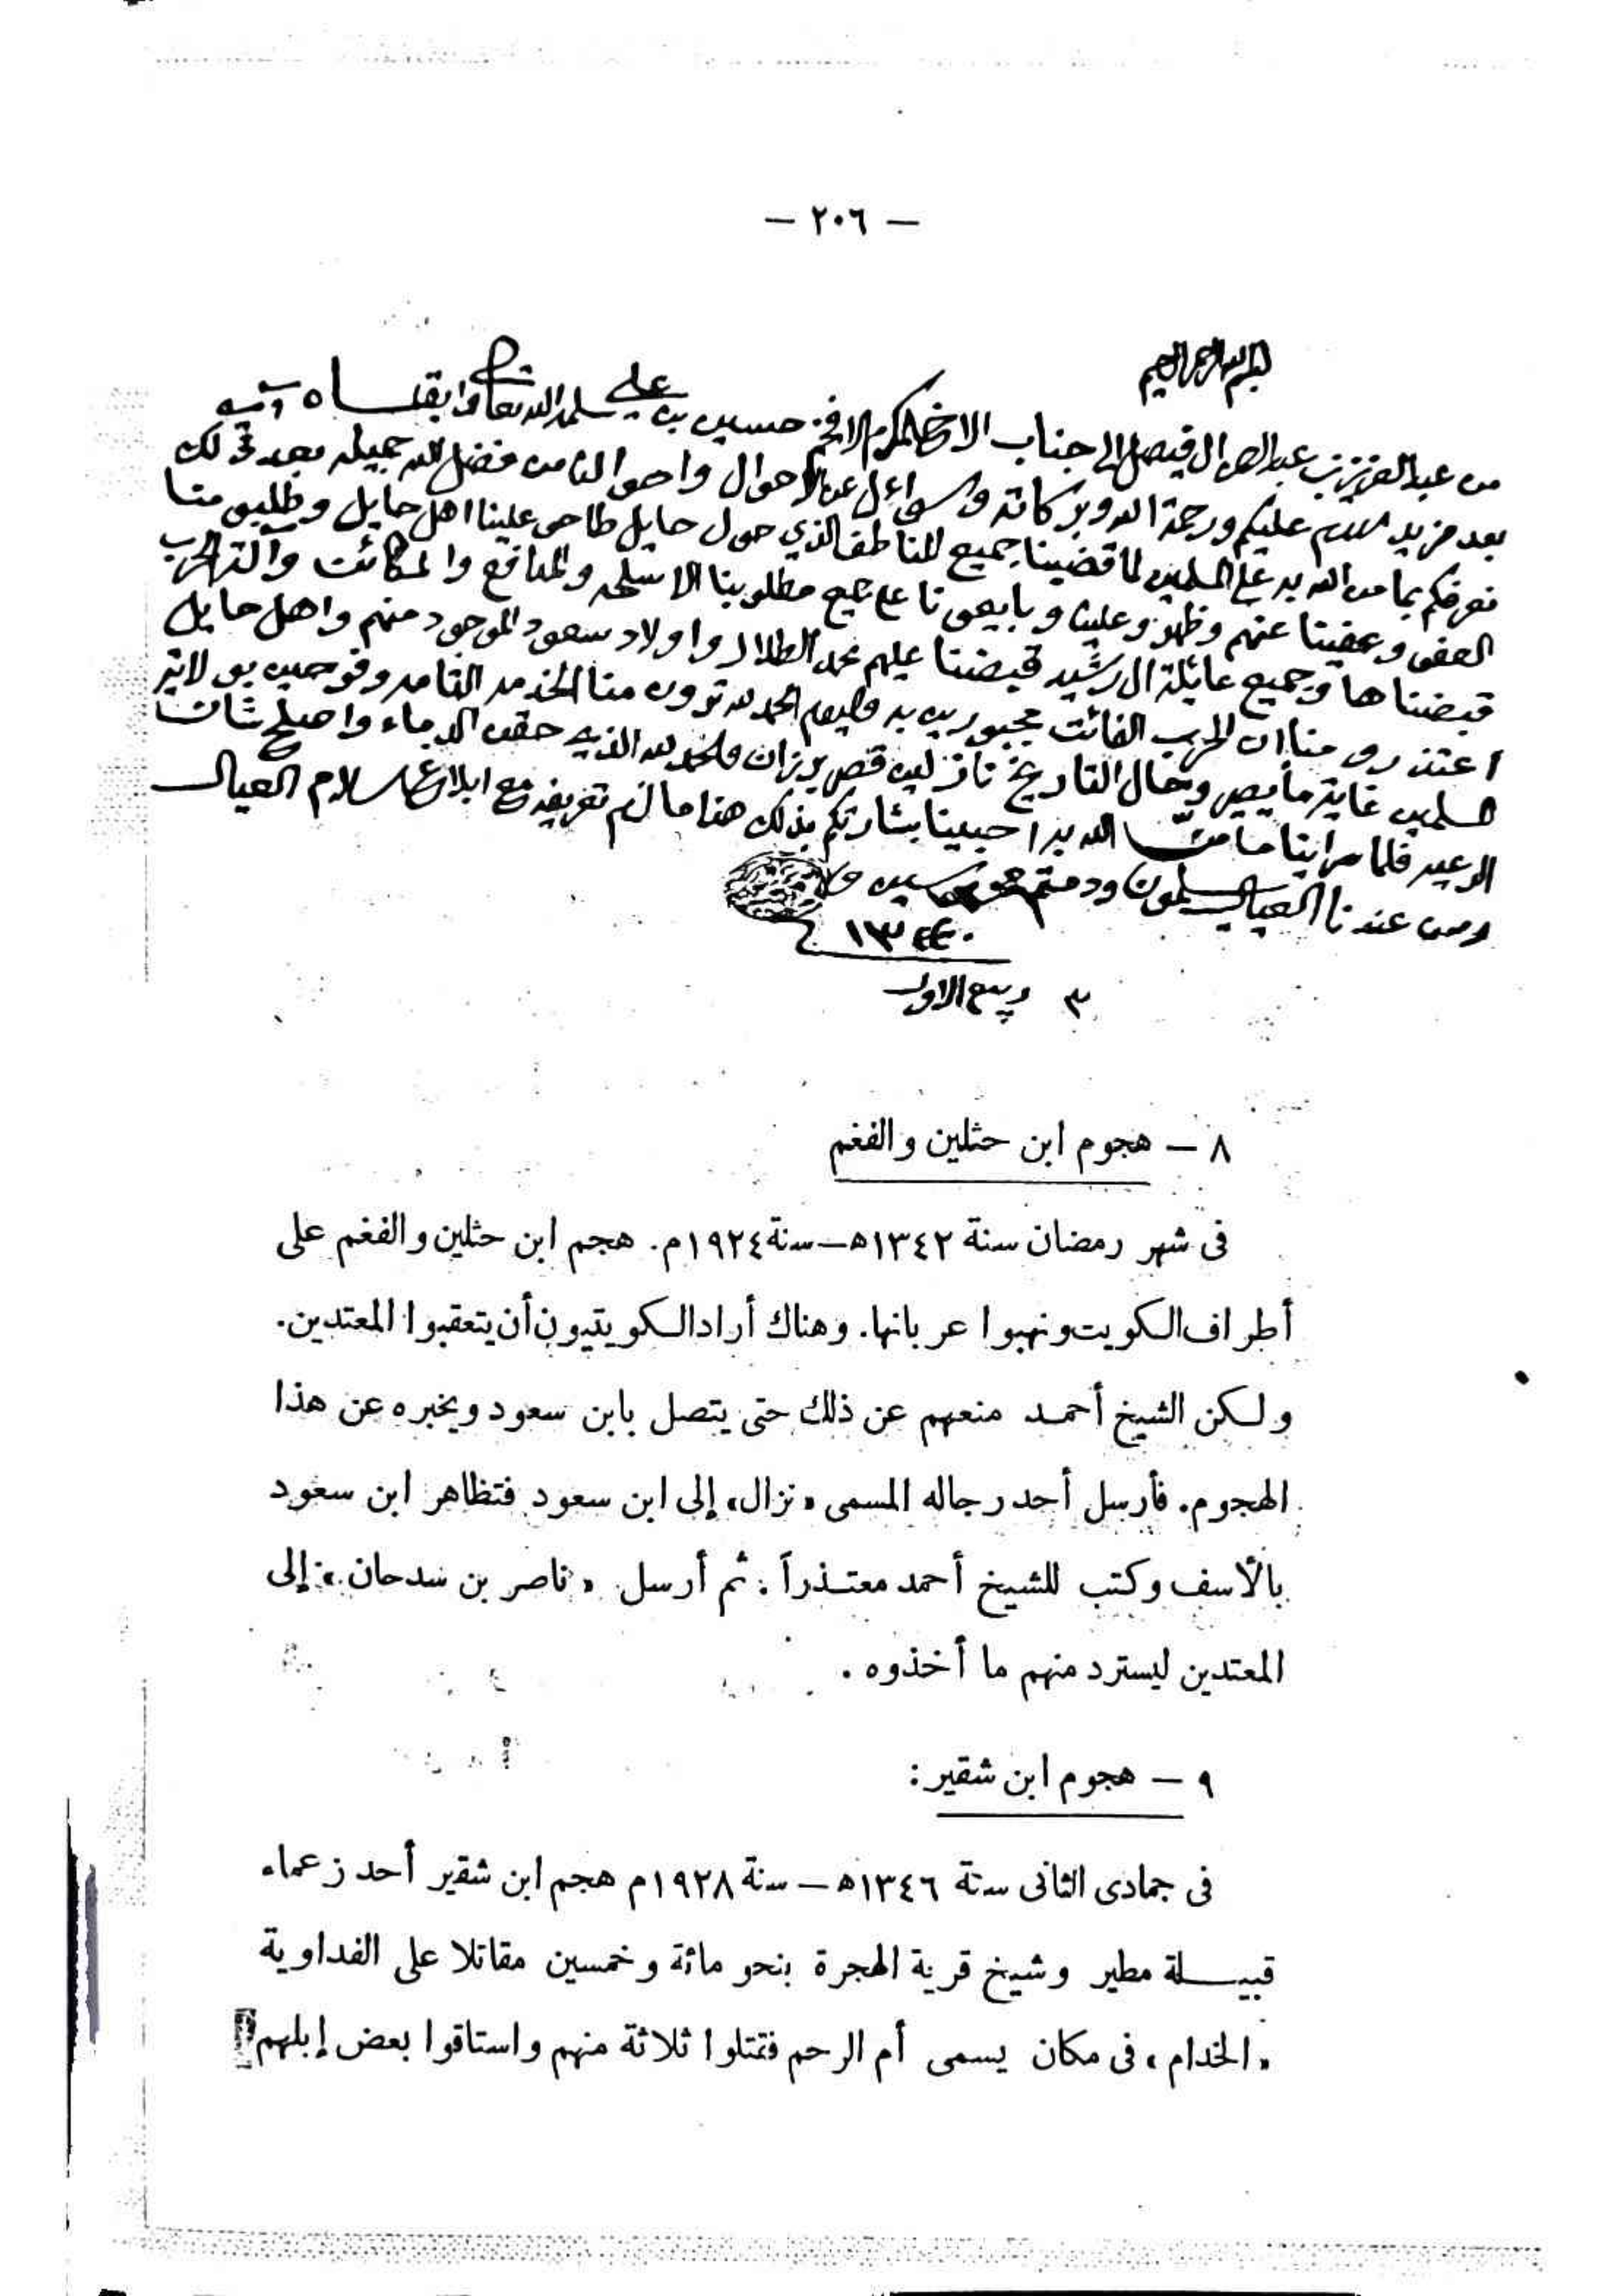 — ٢٠٦ —
بسم الله الرحمن الرحيم
من عبد العزيز بن عبد الرحمن ال فيصل الى جناب الاخ المكرم الافخم حسين بن علي سلمه الله تعالى وابقاه امين
بعد مزيد السلام عليكم ورحمة الله وبركاته والسوال عن الاحوال واحوالنا من فضل الله جميله بعد ذلك
نعرفكم بما من الله به على المسلمين لما قضينا جميع المناطق الذي حول حايل طاحو علينا اهل حايل وطلبو منا
العفو وعفينا عنهم وظهرو علينا وبايعونا على جميع مطلوبنا الاسلحه والمدافع والمكائن وآلة الحرب
قبضناها وجميع عائلة ال رشيد قبضنا عليهم محمد الطلال واولاد سعود الموجود منهم واهل حايل
اعتذرو منا ان الحرب الفائت مجبورين به واليوم الحمد لله ترون منا الخدمه التامه
المسلمين غاية ما يصير وحال التاريخ نازلين قصر برزان والحمد لله الذي حقن الدماء واصلح شان
الرعيه فلما راينا ما من الله به احبينا بشارتكم بذلك هذا ما لزم تعريفه مع ابلاغ السلام العيال
ومن عندنا العيال يسلمون ودمتم محروسين
١٣٤٠
٣ ربيع الاول
٨ — هجوم ابن حثلين والفغم
فى شهر رمضان سنة ١٣٤٢ه‍ — سنة ١٩٢٤م. هجم ابن حثلين والفغم على
أطراف الكويت ونهبوا عربانها. وهناك أراد الكويتيون أن يتعقبوا المعتدين.
ولكن الشيخ أحمد منعهم عن ذلك حتى يتصل بابن سعود ويخبره عن هذا
الهجوم. فأرسل أحد رجاله المسمى «نزال» إلى ابن سعود فتظاهر ابن سعود
بالأسف وكتب للشيخ أحمد معتذراً. ثم أرسل «ناصر بن سدحان» إلى
المعتدين ليسترد منهم ما أخذوه.
٩ — هجوم ابن شقير:
فى جمادى الثانى سنة ١٣٤٦ه‍ — سنة ١٩٢٨م هجم ابن شقير أحد زعماء
قبيلة مطير وشيخ قرية الهجرة بنحو مائة وخمسين مقاتلا على الفداوية
«الخدام» فى مكان يسمى أم الرحم فقتلوا ثلاثة منهم واستاقوا بعض إبلهم